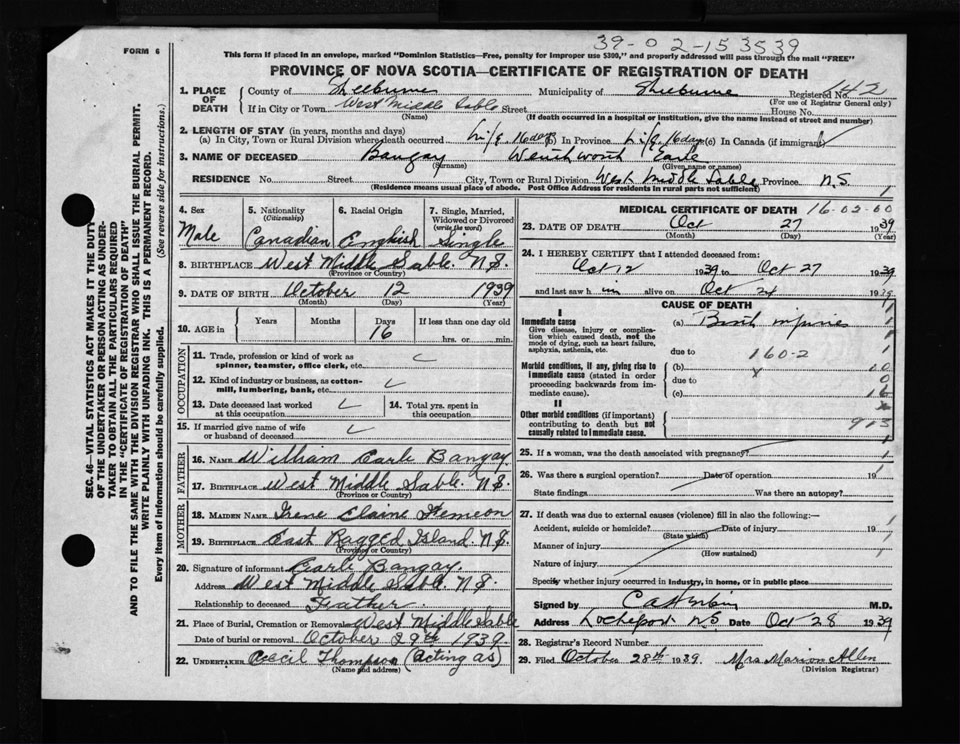 39-0 2-15 3539
FORM 6
This form if placed in an envelope, marked "Dominion Statistics—Free, penalty for improper use $300," and properly addressed will pass through the mail "FREE"
PROVINCE OF NOVA SCOTIA—CERTIFICATE OF REGISTRATION OF DEATH
1. PLACE OF DEATH County of Shelburne Municipality of Shelburne Registered No. 442
(For use of Registrar General only)
If in City or Town West Middle Sable Street House No.
(Name) (If death occurred in a hospital or institution, give the name instead of street and number)
2. LENGTH OF STAY (in years, months and days)
(a) In City, Town or Rural Division where death occurred Life 16 days (b) In Province Life 16 days (c) In Canada (if immigrant)
3. NAME OF DECEASED Bangay Wentworth Earle
(Surname) (Given name or names)
RESIDENCE No. Street City, Town or Rural Division West Middle Sable Province N.S.
(Residence means usual place of abode. Post Office Address for residents in rural parts not sufficient) 1
4. Sex Male
5. Nationality (Citizenship) Canadian
6. Racial Origin English
7. Single, Married, Widowed or Divorced (write the word) Single
8. BIRTHPLACE West Middle Sable. N.S.
(Province or Country)
9. DATE OF BIRTH October 12 1939
(Month) (Day) (Year)
10. AGE in Years Months Days 16 If less than one day old hrs. or min.
OCCUPATION
11. Trade, profession or kind of work as spinner, teamster, office clerk, etc.
12. Kind of industry or business, as cotton-mill, lumbering, bank, etc.
13. Date deceased last worked at this occupation
14. Total yrs. spent in this occupation
15. If married give name of wife or husband of deceased
FATHER
16. NAME William Earle Bangay
17. BIRTHPLACE West Middle Sable. N.S.
(Province or Country)
MOTHER
18. MAIDEN NAME Irene Elaine Hemeon
19. BIRTHPLACE East Ragged Island. N.S.
(Province or Country)
20. Signature of informant Earle Bangay.
Address West Middle Sable. N.S.
Relationship to deceased Feather.
21. Place of Burial, Cremation or Removal West Middle Sable
Date of burial or removal October 29th 1939.
22. UNDERTAKER Cecil Thompson (Acting as)
(Name and address)
MEDICAL CERTIFICATE OF DEATH 16-02-00
23. DATE OF DEATH Oct 27 1939
(Month) (Day) (Year)
24. I HEREBY CERTIFY that I attended deceased from:
Oct 12 1939 to Oct 27 1939
and last saw him alive on Oct 24 1939
CAUSE OF DEATH
I
Immediate cause
Give disease, injury or complication which caused death, not the mode of dying, such as heart failure, asphyxia, asthenia, etc.
(a) Birth injuries
due to 160-2
Morbid conditions, if any, giving rise to immediate cause (stated in order proceeding backwards from immediate cause).
(b)
due to
(c)
II
Other morbid conditions (if important) contributing to death but not causally related to immediate cause.
913
25. If a woman, was the death associated with pregnancy?
26. Was there a surgical operation? Date of operation 19
State findings Was there an autopsy?
27. If death was due to external causes (violence) fill in also the following:—
Accident, suicide or homicide? Date of injury 19
(State which)
Manner of injury
(How sustained)
Nature of injury
Specify whether injury occurred in industry, in home, or in public place
Signed by M.D.
Address Lockeport N.S. Date Oct 28 1939
28. Registrar's Record Number
29. Filed October 28th 1939. Mrs Marion Allen
(Division Registrar)
SEC. 46—VITAL STATISTICS ACT MAKES IT THE DUTY
OF THE UNDERTAKER OR PERSON ACTING AS UNDER-
TAKER TO OBTAIN ALL THE PARTICULARS REQUIRED
IN THE "CERTIFICATE OF REGISTRATION OF DEATH"
AND TO FILE THE SAME WITH THE DIVISION REGISTRAR WHO SHALL ISSUE THE BURIAL PERMIT.
WRITE PLAINLY WITH UNFADING INK. THIS IS A PERMANENT RECORD.
Every item of information should be carefully supplied. (See reverse side for instructions.)